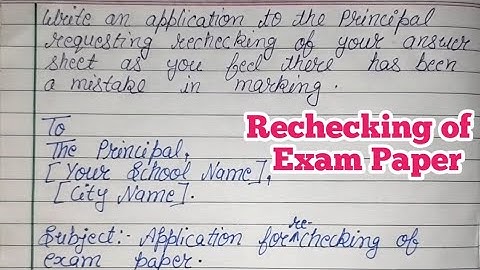 Write an application to the Principal
requesting rechecking of your answer
sheet as you feel there has been
a mistake in marking.
To
The Principal,
[Your School Name],
[City Name].
Rechecking of
Exam Paper
Subject:- Application for re-checking of
exam paper.